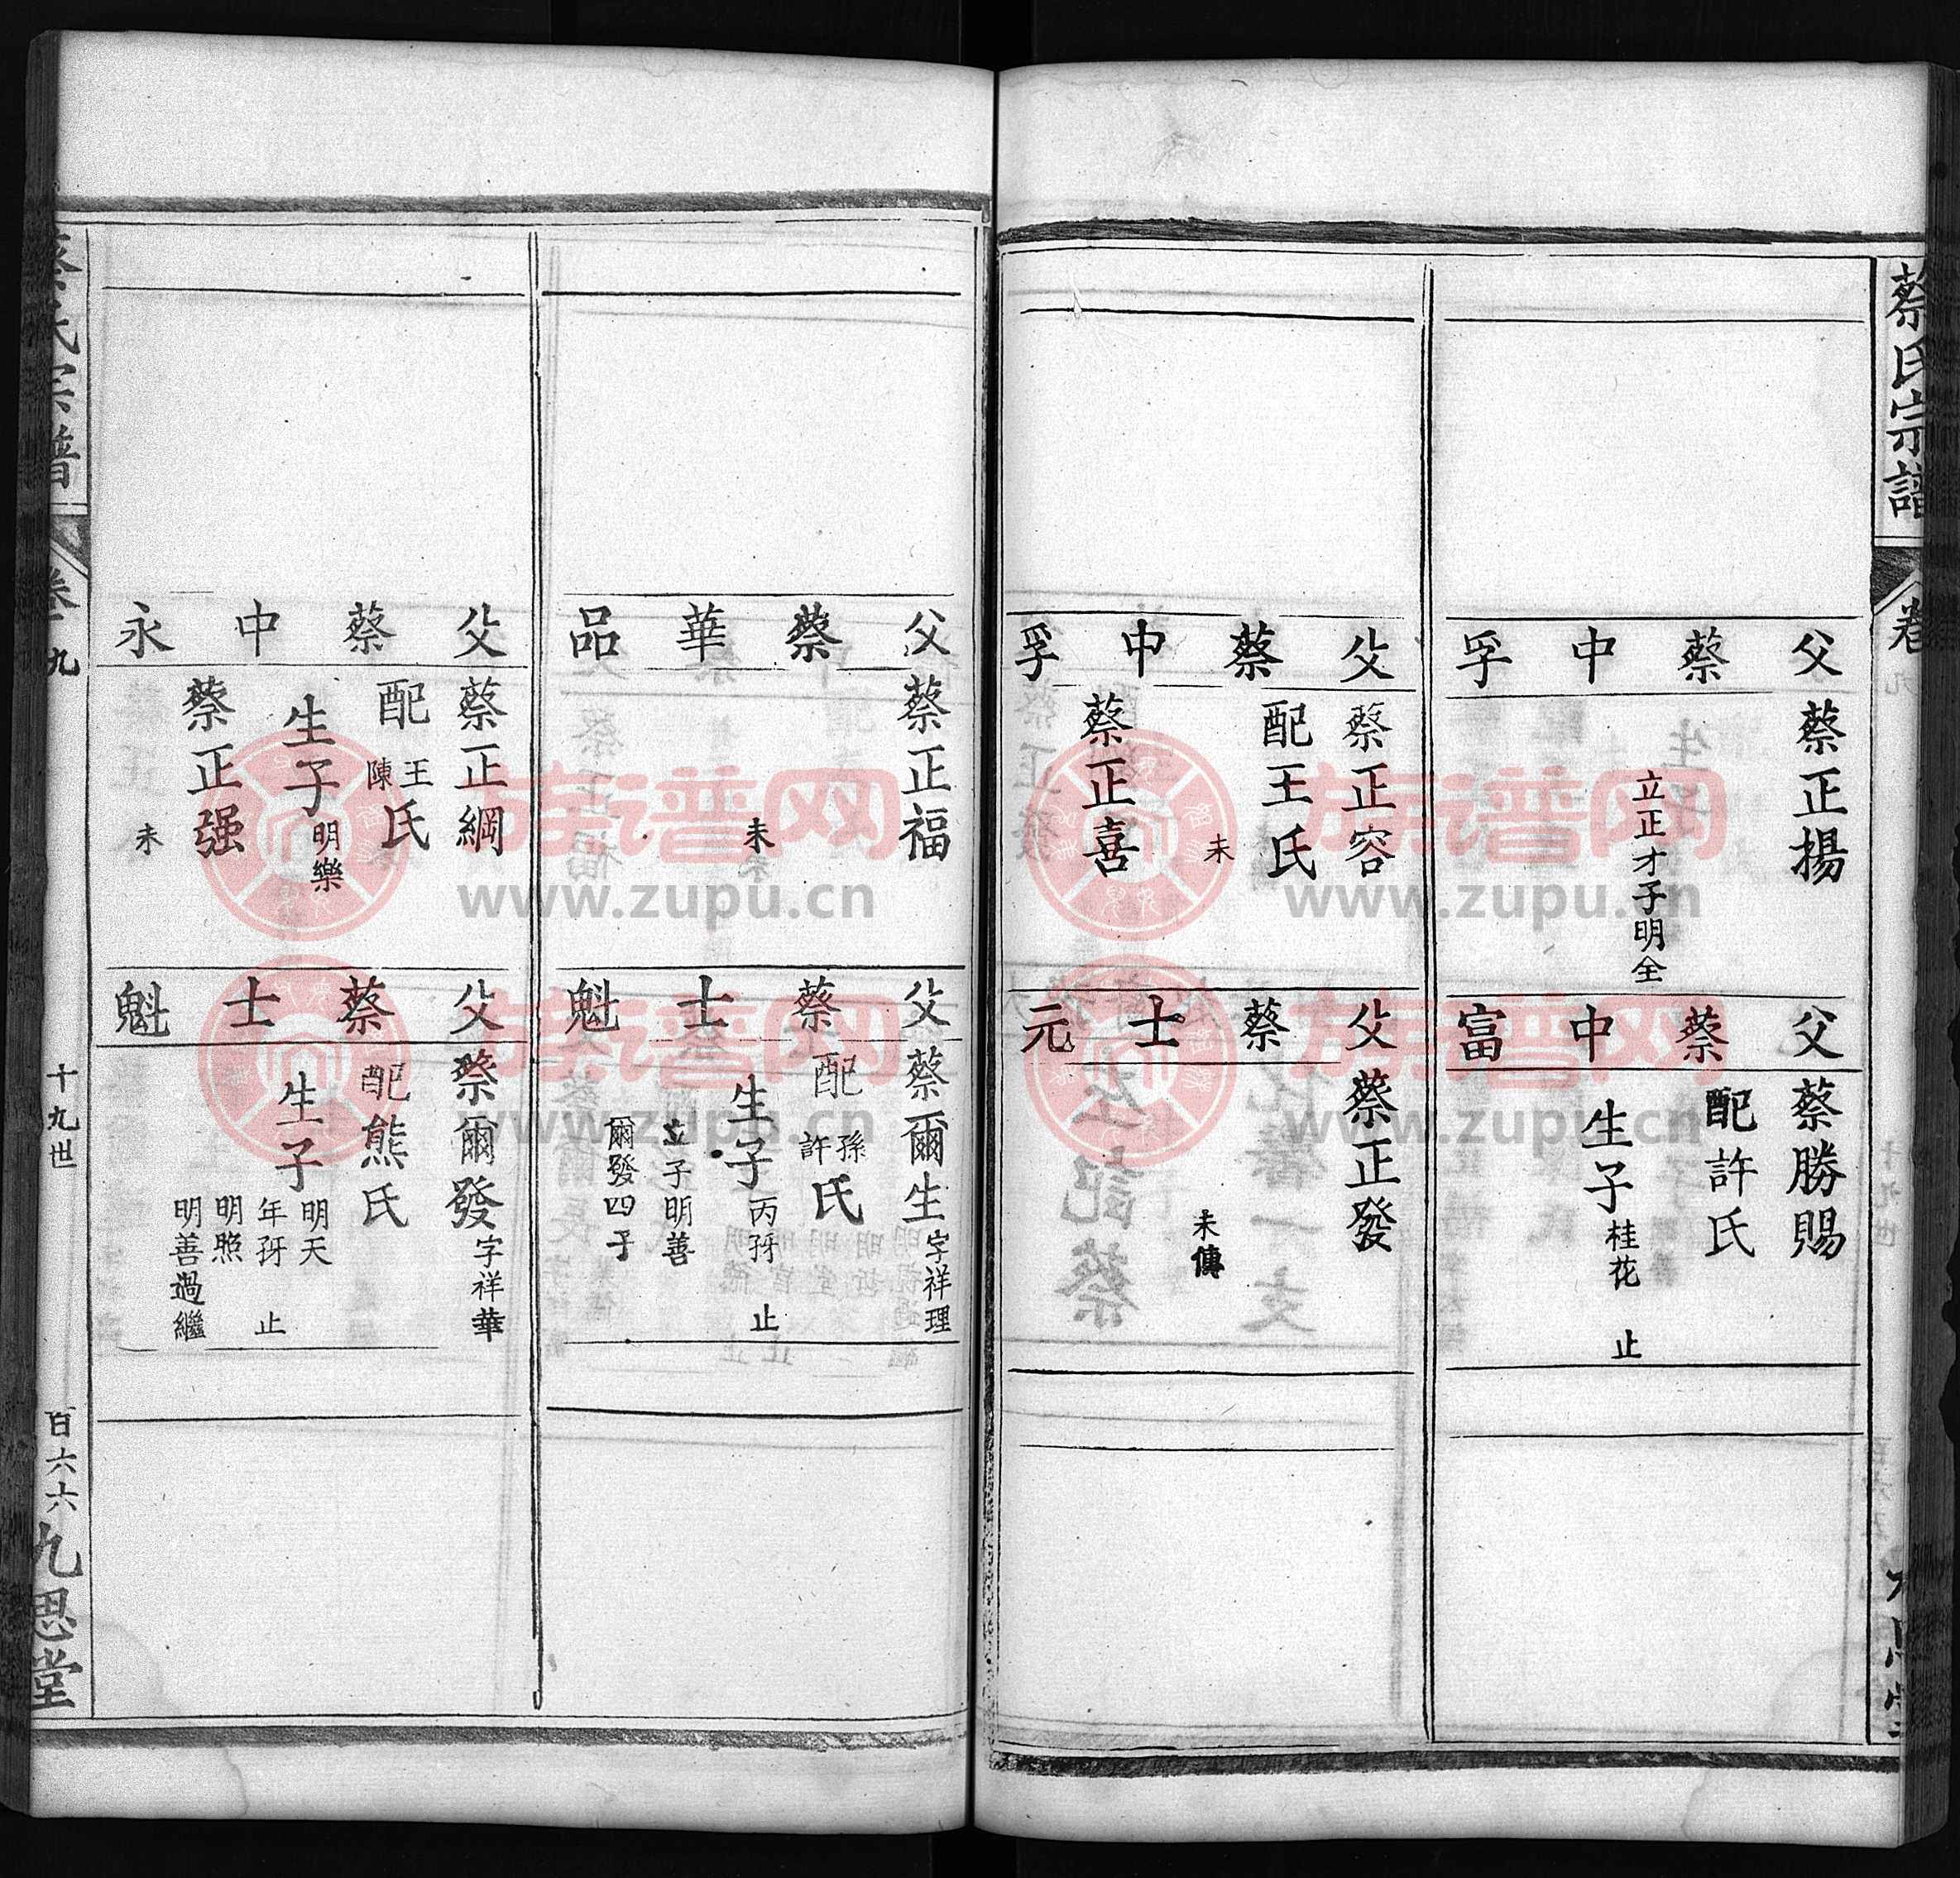 蔡氏宗譜
卷
父蔡中孚
蔡正揚
立正才子明全
父蔡中富
蔡勝賜
配許氏
生子桂花 止
父蔡中孚
蔡正容
配王氏
未
蔡正喜
父蔡士元
蔡正發
未傳
父蔡華品
蔡正福
未
父蔡士魁
蔡爾生字祥理
配孫許氏
生子丙孖 止
立子明善
爾發四子
父蔡中永
蔡正綱
配王陳氏
生子明樂
蔡正强
未
父蔡士魁
蔡爾發字祥華
配熊氏
生子明天
年孖 止
明照
明善過繼
蔡氏宗譜
卷九
十九世
百六六
九思堂
族谱网
www.zupu.cn
族谱网
www.zupu.cn
族谱网
www.zupu.cn
族谱网
www.zupu.cn